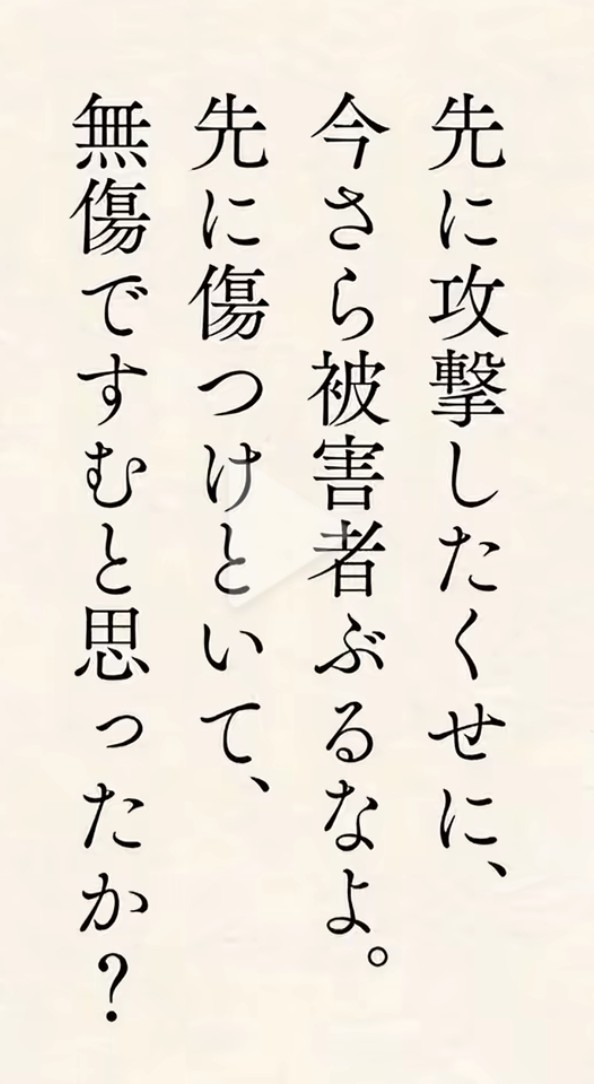 先に攻撃したくせに、
今さら被害者ぶるなよ。
先に傷つけといて、
無傷ですむと思ったか？